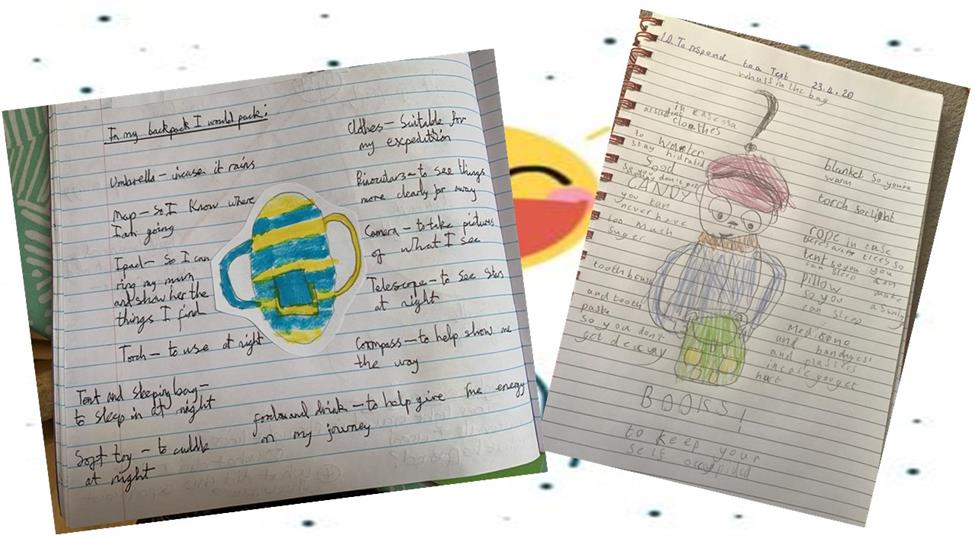 In my backpack I would pack:
Umbrella - incase it rains
Map - so I know where
I am going
Ipad - so I can
ring my mum
and show her the
things I find
Torch - to use at night
Tent and sleeping bag -
to sleep in at night
Soft toy - to cuddle
at night
Clothes - Suitable for
my expedition
Binoculars - to see things
more clearly far away
Camera - to take pictures
of what I see
Telescope - to see stars
at night
Compass - to help show me
the way
food and drink - to help give me energy
on my journey
L.O. To respond to a Text 23.4.20
what's in the bag
in case
clothes
to stay hidrated
Food
CANDY
you can
never have
too much
Suger
tooth brush
and tooth
paste
so you dont
get decay
blanket so you're
warm
torch so light
rope in case
tent so you can
pillow
so you
can sleep
Medicine
and bandges
and plasters
incase you get
hurt
BOOKS!
to keep your
self occupid